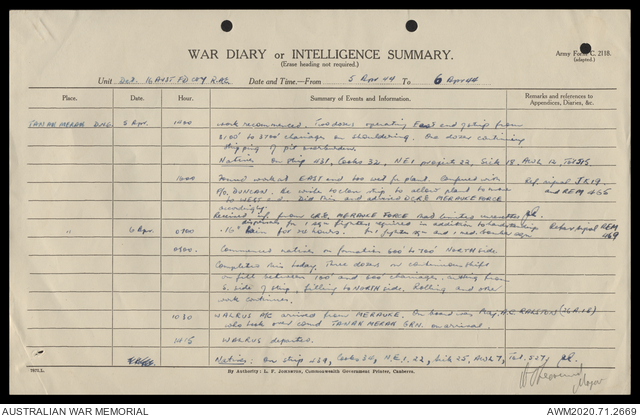 WAR DIARY or INTELLIGENCE SUMMARY.
(Erase heading not required.)
Army Form C. 2118.
(adapted.)
Unit Det. 16 AUST FD COY R.A.E. Date and Time.—From 5 Apr 44 To 6 Apr 44
Place. Date. Hour. Summary of Events and Information. Remarks and references to Appendices, Diaries, &c.
TANAH MERAH 5 Apr. 1000 work recommenced. Two dozers operating East end of strip from
to 3700' chainage on shouldering. One dozer continuing
stripping of pit overburden.
Natives: On strip 431, Cooks 32, N.E.I. 22, Sick 18,
1600 work at EAST end too wet for plant. Conferred with
F/O. DUNCAN. He wrote to close strip to allow plant to move
to WEST end. Did this and advised DCRE MERAUKE FORCE
accordingly.
Ref. signal JK19
and REM 465
Received sig from CRE MERAUKE FORCE that limited
for 1 sqn fighters required in addition to
" 6 Apr. 0700 .16" Rain for 24 hours. for 1 fighter sqn and 1 med. bomber sqn
Refer signal REM
469
0900. Commenced natives on formation 600' to 700' NORTH side.
Completed this today. Three dozers on continuous shift
on fill between 100' and 600' chainage, cutting from
S. side of strip, filling to NORTH side. Rolling and other
work continues.
1030 WALRUS A/C arrived from MERAUKE. On board was Maj. A.C. RALSTON
who took over comd TANAH MERAH GRN. on arrival.
WALRUS departed.
Natives: On strip 439, Cooks 34, N.E.I. 22, Sick 25, 7, Tot. 527
Major
By Authority: L. F. Johnston, Commonwealth Government Printer, Canberra.
AUSTRALIAN WAR MEMORIAL
AWM2020.71.2669